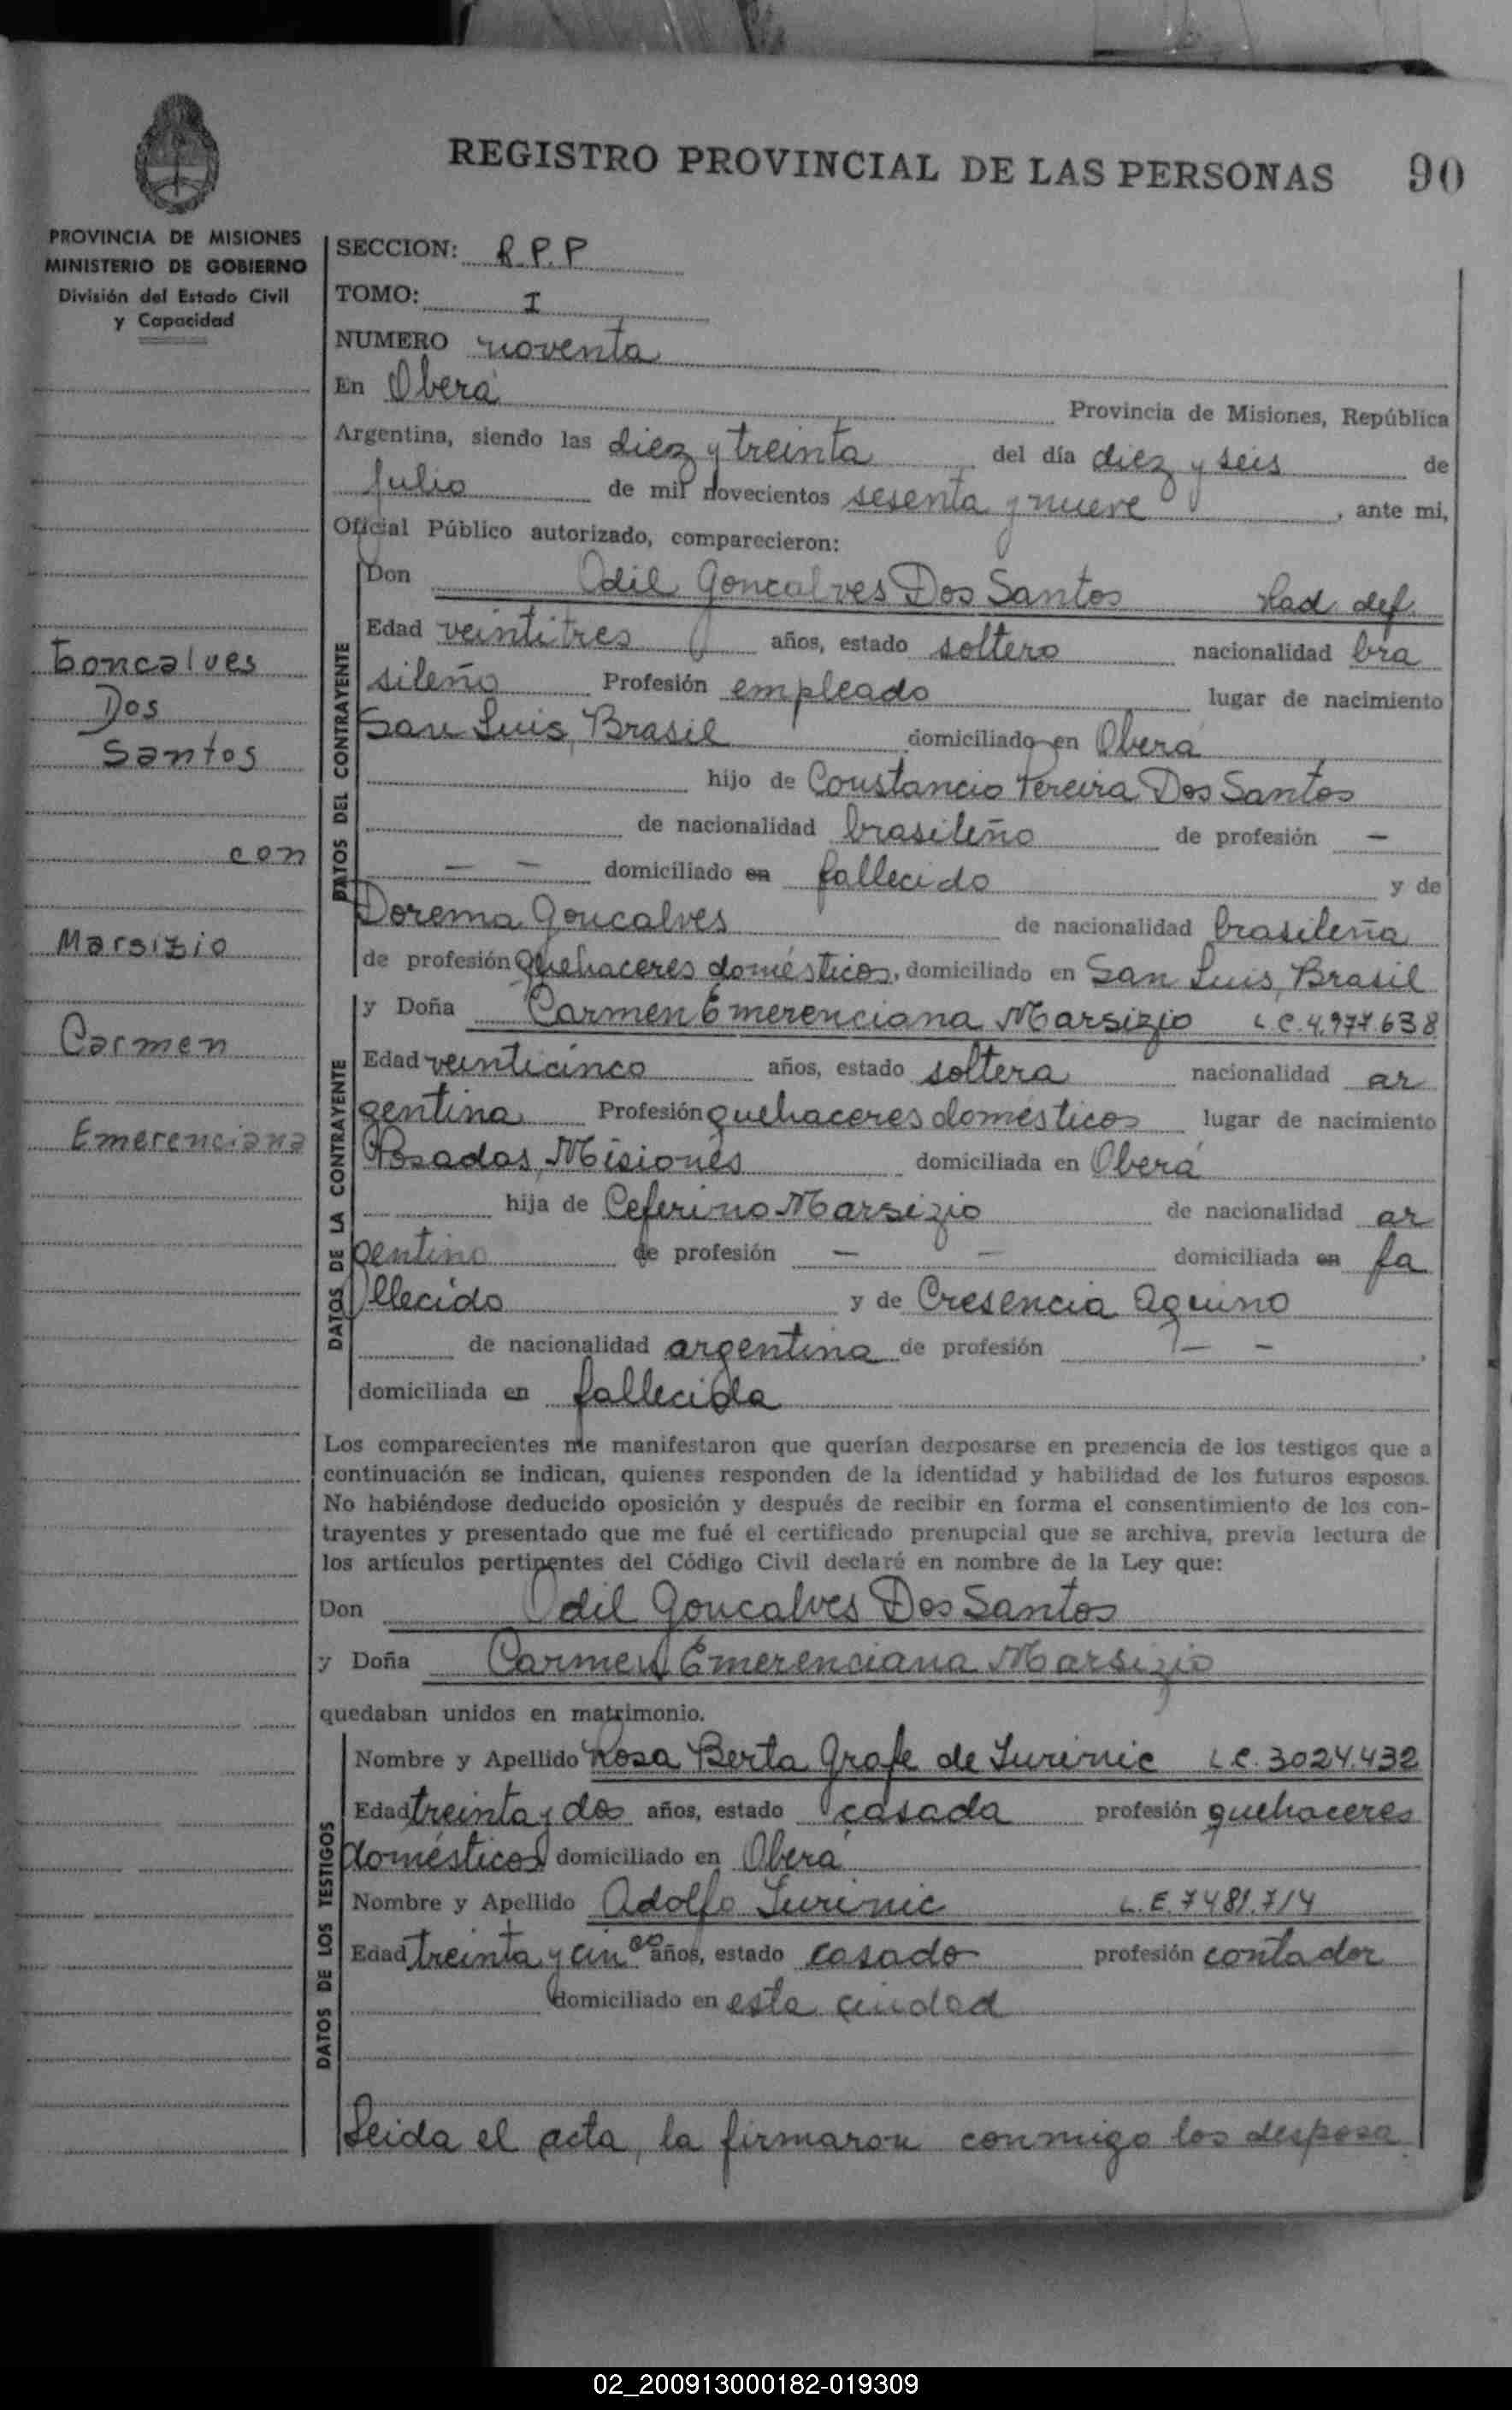 REGISTRO PROVINCIAL DE LAS PERSONAS 90
PROVINCIA DE MISIONES
MINISTERIO DE GOBIERNO
División del Estado Civil
y Capacidad
Goncalves
Dos
Santos
con
Marsizio
Carmen
Emerenciana
SECCION: R.P.P
TOMO: I
NUMERO noventa
En Oberá Provincia de Misiones, República
Argentina, siendo las diez y treinta del día diez y seis de
Julio de mil novecientos sesenta y nueve, ante mi,
Oficial Público autorizado, comparecieron:
DATOS DEL CONTRAYENTE
Don Odil Goncalves Dos Santos Rad. def.
Edad veintitres años, estado soltero nacionalidad bra
sileño Profesión empleado lugar de nacimiento
San Luis, Brasil domiciliado en Oberá
hijo de Constancio Pereira Dos Santos
de nacionalidad brasileño de profesión —
— — domiciliado en fallecido y de
Dorema Goncalves de nacionalidad brasileña
de profesión Quehaceres domésticos, domiciliado en San Luis, Brasil
DATOS DE LA CONTRAYENTE
y Doña Carmen Emerenciana Marsizio L.C. 4.977.638
Edad veinticinco años, estado soltera nacionalidad ar
gentina Profesión quehaceres domésticos lugar de nacimiento
Posadas, Misiones domiciliada en Oberá
hija de Ceferino Marsizio de nacionalidad ar
gentino de profesión — — domiciliada en fa
llecido y de Cresencia Aquino
de nacionalidad argentina de profesión — — ,
domiciliada en fallecida
Los comparecientes me manifestaron que querían desposarse en presencia de los testigos que a
continuación se indican, quienes responden de la identidad y habilidad de los futuros esposos.
No habiéndose deducido oposición y después de recibir en forma el consentimiento de los con-
trayentes y presentado que me fué el certificado prenupcial que se archiva, previa lectura de
los artículos pertinentes del Código Civil declaré en nombre de la Ley que:
Don Odil Goncalves Dos Santos
y Doña Carmen Emerenciana Marsizio
quedaban unidos en matrimonio.
DATOS DE LOS TESTIGOS
Nombre y Apellido Rosa Berta Grafe de Surinic L.C. 3024.432
Edad treinta y dos años, estado casada profesión quehaceres
domésticos domiciliado en Oberá
Nombre y Apellido Adolfo Surinic L.E. 7481.714
Edad treinta y cinco años, estado casado profesión contador
domiciliado en esta ciudad
Leida el acta, la firmaron conmigo los desposa
02_200913000182-019309